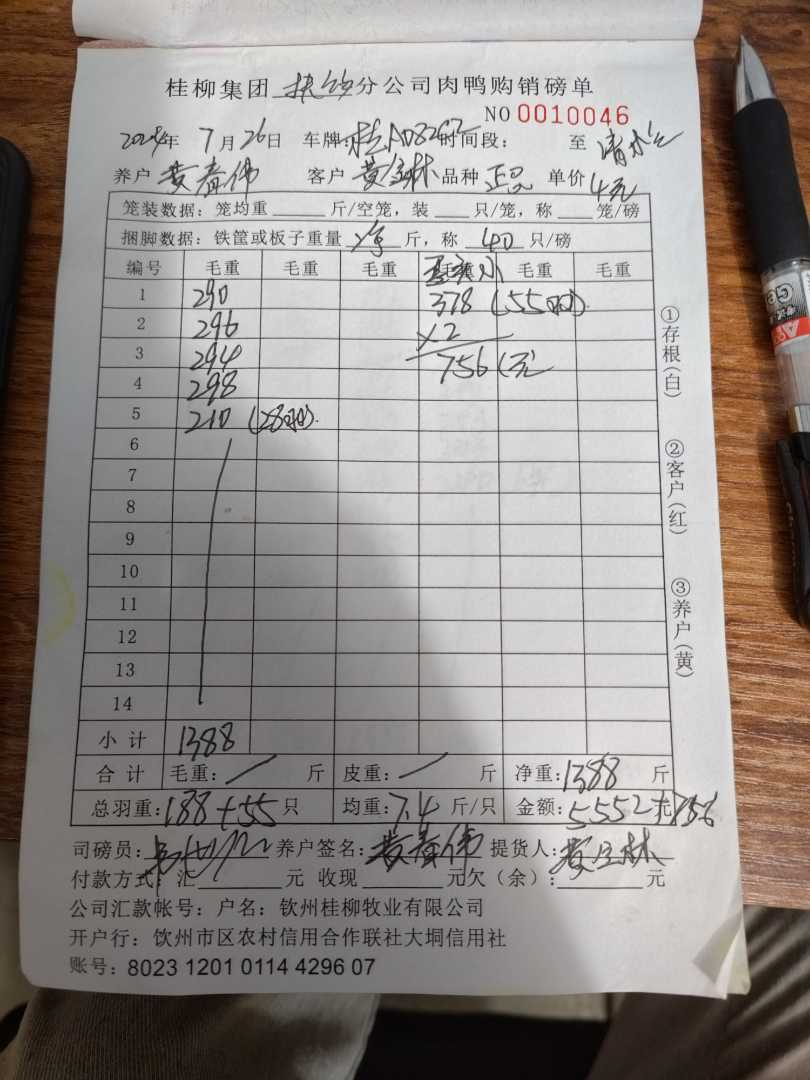 桂柳集团 扶绥 分公司肉鸭购销磅单
NO 0010046
2024年 7月26日 车牌: 时间段: 至
养户 黄春伟 客户 黄宝林 品种 正品 单价 4元
笼装数据：笼均重 斤/空笼，装 只/笼，称 笼/磅
捆脚数据：铁筐或板子重量 斤，称 40 只/磅
编号 毛重 毛重 毛重 毛重 毛重 毛重
1 290 378 (55只)
2 296 ×2
3 294 756 (元
4 298
5 210 (28只).
6
7
8
9
10
11
12
13
14
小计 1388
合计 毛重: / 斤 皮重: / 斤 净重:1388 斤
总羽重:188+55只 均重:7.4斤/只 金额:5552元+756
司磅员: 养户签名:黄春伟 提货人:黄宝林
付款方式: 汇 元 收现 元欠（余）: 元
公司汇款帐号：户名：钦州桂柳牧业有限公司
开户行：饮州市区农村信用合作联社大垌信用社
账号：8023 1201 0114 4296 07
①存根(白)
②客户(红)
③养户(黄)